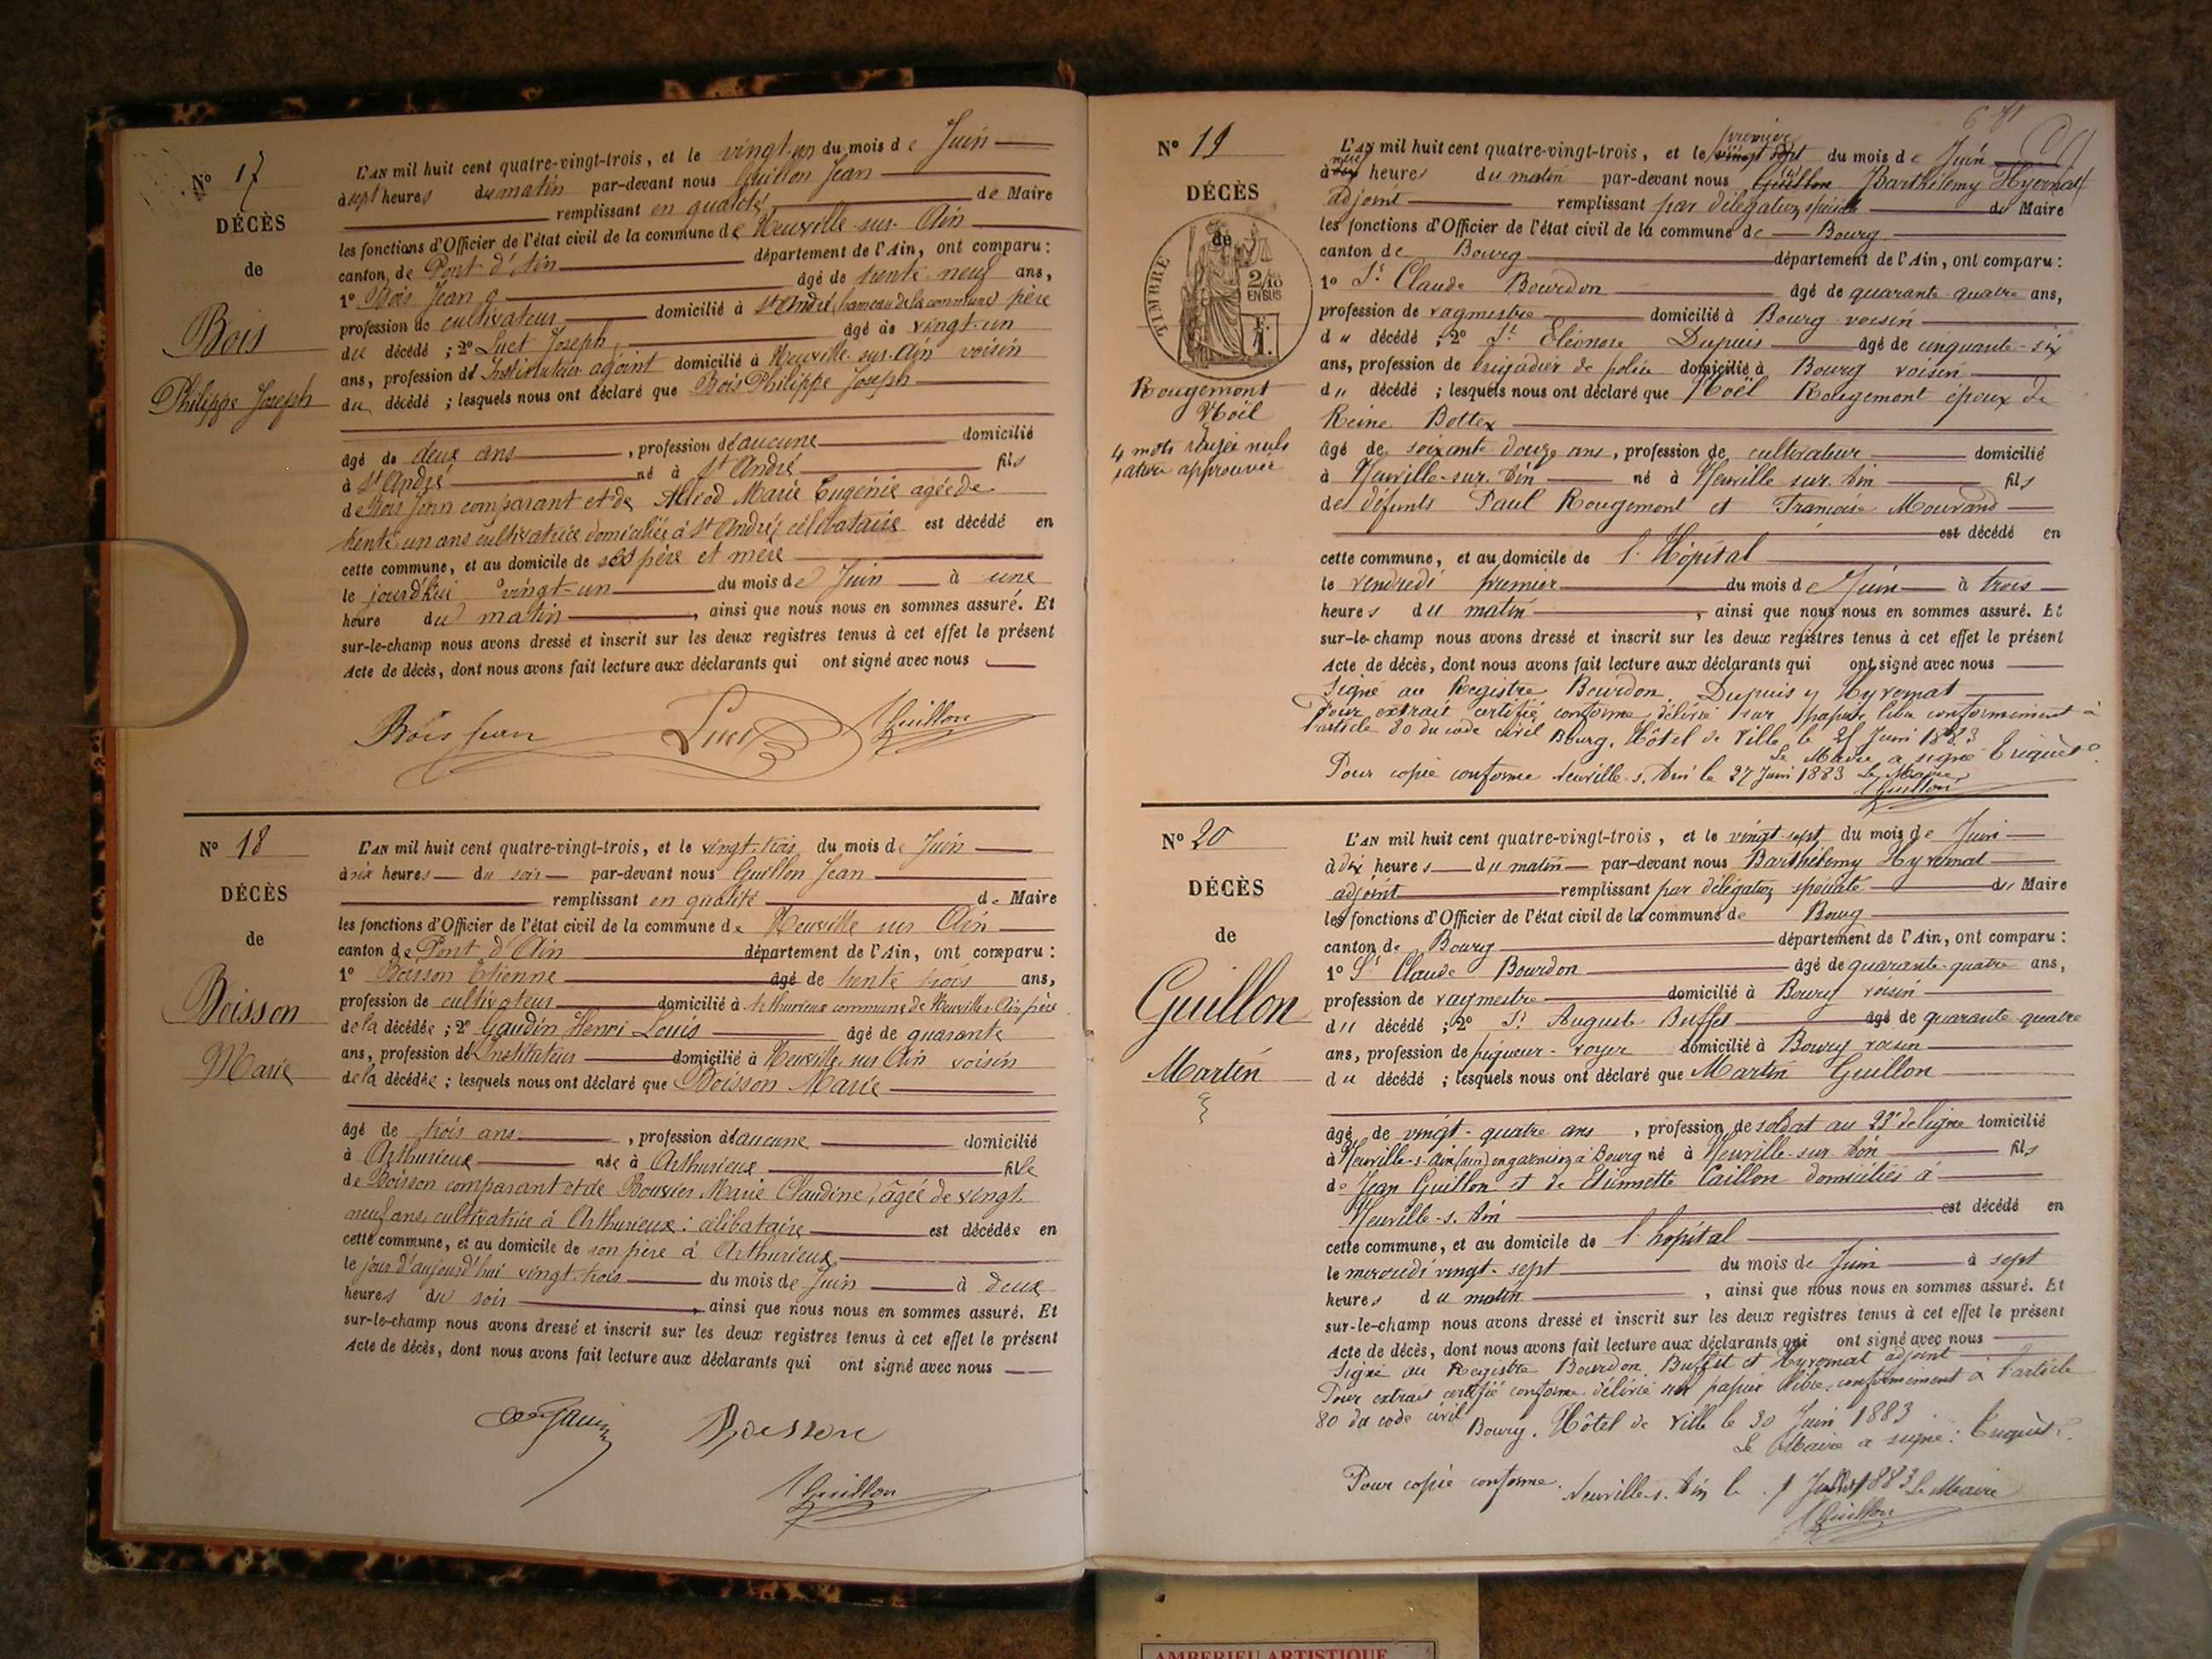 N° 17
DÉCÈS
de
Bois
Philippe Joseph
L'AN mil huit cent quatre-vingt-trois, et le vingt-un du mois de Juin
à sept heures du matin par-devant nous Guillon Jean
remplissant en qualité de Maire
les fonctions d'Officier de l'état civil de la commune de Neuville-sur-Ain
canton de Pont d'Ain département de l'Ain, ont comparu :
1° Bois Jean âgé de trente-neuf ans,
profession de cultivateur domicilié à St André, hameau de la commune père
du décédé ; 2° Luet Joseph, âgé de vingt-un
ans, profession d' Instituteur adjoint domicilié à Neuville-sur-Ain voisin
du décédé ; lesquels nous ont déclaré que Bois Philippe Joseph
âgé de deux ans, profession d'aucune domicilié
à St André né à St André fils
de Bois Jean comparant et de Marie Eugénie agée de
trente un ans cultivatrice domiciliée à St André, célibataire est décédé en
cette commune, et au domicile de ses père et mère
le jourd'hui vingt-un du mois de Juin à une
heure du matin, ainsi que nous nous en sommes assuré. Et
sur-le-champ nous avons dressé et inscrit sur les deux registres tenus à cet effet le présent
Acte de décès, dont nous avons fait lecture aux déclarants qui ont signé avec nous
Bois Jean Luet Guillon
N° 18
DÉCÈS
de
Boisson
Marie
L'AN mil huit cent quatre-vingt-trois, et le vingt-trois du mois de Juin
à six heures du soir par-devant nous Guillon Jean
remplissant en qualité de Maire
les fonctions d'Officier de l'état civil de la commune de Neuville sur Ain
canton de Pont d'Ain département de l'Ain, ont comparu :
1° Boisson Etienne âgé de trente trois ans,
profession de cultivateur domicilié à Arthurieux commune de Neuville s. Ain père
de la décédée ; 2° Gaudin Henri Louis âgé de quarante
ans, profession d' Instituteur domicilié à Neuville sur Ain voisin
de la décédée ; lesquels nous ont déclaré que Boisson Marie
âgé de trois ans, profession d'aucune domicilié
à Arthurieux née à Arthurieux fille
de Boisson comparant et de Bouvier Marie Claudine, âgée de vingt
neuf ans, cultivatrice à Arthurieux : célibataire est décédée en
cette commune, et au domicile de son père à Arthurieux
le jour d'aujourd'hui vingt-trois du mois de Juin à deux
heures du soir, ainsi que nous nous en sommes assuré. Et
sur-le-champ nous avons dressé et inscrit sur les deux registres tenus à cet effet le présent
Acte de décès, dont nous avons fait lecture aux déclarants qui ont signé avec nous
Boisson
Guillon
N° 19
DÉCÈS
de
TIMBRE
2/10
EN SUS
Rougemont
Noël
4 mots rayés nuls
L'AN mil huit cent quatre-vingt-trois, et le premier vingt sept du mois de Juin
à neuf heures du matin par-devant nous Guillon Barthélemy Hyvernat
adjoint remplissant par délégation spéciale du Maire
les fonctions d'Officier de l'état civil de la commune de Bourg
canton de Bourg département de l'Ain, ont comparu :
1° Sr Claude Bourdon âgé de quarante-quatre ans,
profession de vagmestre domicilié à Bourg voisin
du décédé ; 2° Sr Eléonore Dupuis âgé de cinquante-six
ans, profession de brigadier de police domicilié à Bourg voisin
du décédé ; lesquels nous ont déclaré que Noël Rougemont époux de
Reine Bottex
âgé de soixante douze ans, profession de cultivateur domicilié
à Neuville-sur-Ain né à Neuville sur Ain fils
des défunts Paul Rougemont et Françoise Mourand
est décédé en
cette commune, et au domicile de l'Hôpital
le vendredi premier du mois de Juin à trois
heures du matin, ainsi que nous nous en sommes assuré. Et
sur-le-champ nous avons dressé et inscrit sur les deux registres tenus à cet effet le présent
Acte de décès, dont nous avons fait lecture aux déclarants qui ont signé avec nous
Signé au Registre Bourdon, Dupuis et Hyvernat
Pour extrait certifié conforme délivré sur papier libre conformément à
l'article 80 du code civil Bourg, Hôtel de Ville, le 21 Juin 1883
Le Maire a signé
Pour copie conforme Neuville s. Ain le 27 Juin 1883 Le Maire
Guillon
N° 20
DÉCÈS
de
Guillon
Martin
L'AN mil huit cent quatre-vingt-trois, et le vingt-sept du mois de Juin
à dix heures du matin par-devant nous Barthélemy Hyvernat
adjoint remplissant par délégation spéciale du Maire
les fonctions d'Officier de l'état civil de la commune de Bourg
canton de Bourg département de l'Ain, ont comparu :
1° Sr Claude Bourdon âgé de quarante-quatre ans,
profession de vagmestre domicilié à Bourg voisin
du décédé ; 2° Sr Auguste Buffet âgé de quarante-quatre
ans, profession de piqueur-voyer domicilié à Bourg voisin
du décédé ; lesquels nous ont déclaré que Martin Guillon
âgé de vingt-quatre ans, profession de soldat au 23e de ligne domicilié
à Neuville-s-Ain (Ain) en garnison à Bourg né à Neuville-sur-Ain fils
de Jean Guillon et de Etiennette Caillon domiciliés à
Neuville-s. Ain est décédé en
cette commune, et au domicile de l'hôpital
le mercredi vingt-sept du mois de Juin à sept
heures du matin, ainsi que nous nous en sommes assuré. Et
sur-le-champ nous avons dressé et inscrit sur les deux registres tenus à cet effet le présent
Acte de décès, dont nous avons fait lecture aux déclarants qui ont signé avec nous
Signé au Registre Bourdon, Buffet et Hyvernat adjoint
Pour extrait certifié conforme délivré sur papier libre, conformément à l'article
80 du code civil Bourg, Hôtel de Ville le 30 Juin 1883
Le Maire a signé :
Pour copie conforme. Neuville s. Ain le 1 Juillet 1883 Le Maire
Guillon
AMBERIEU ARTISTIQUE